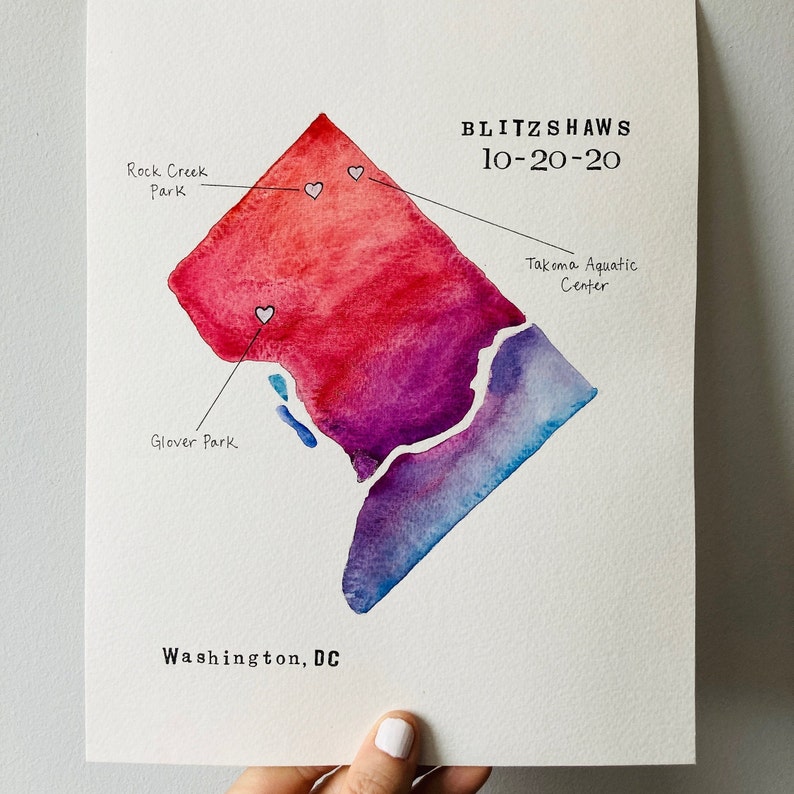 BLITZSHAWS
10-20-20
Rock Creek
Park
Takoma Aquatic
Center
Glover Park
Washington, DC